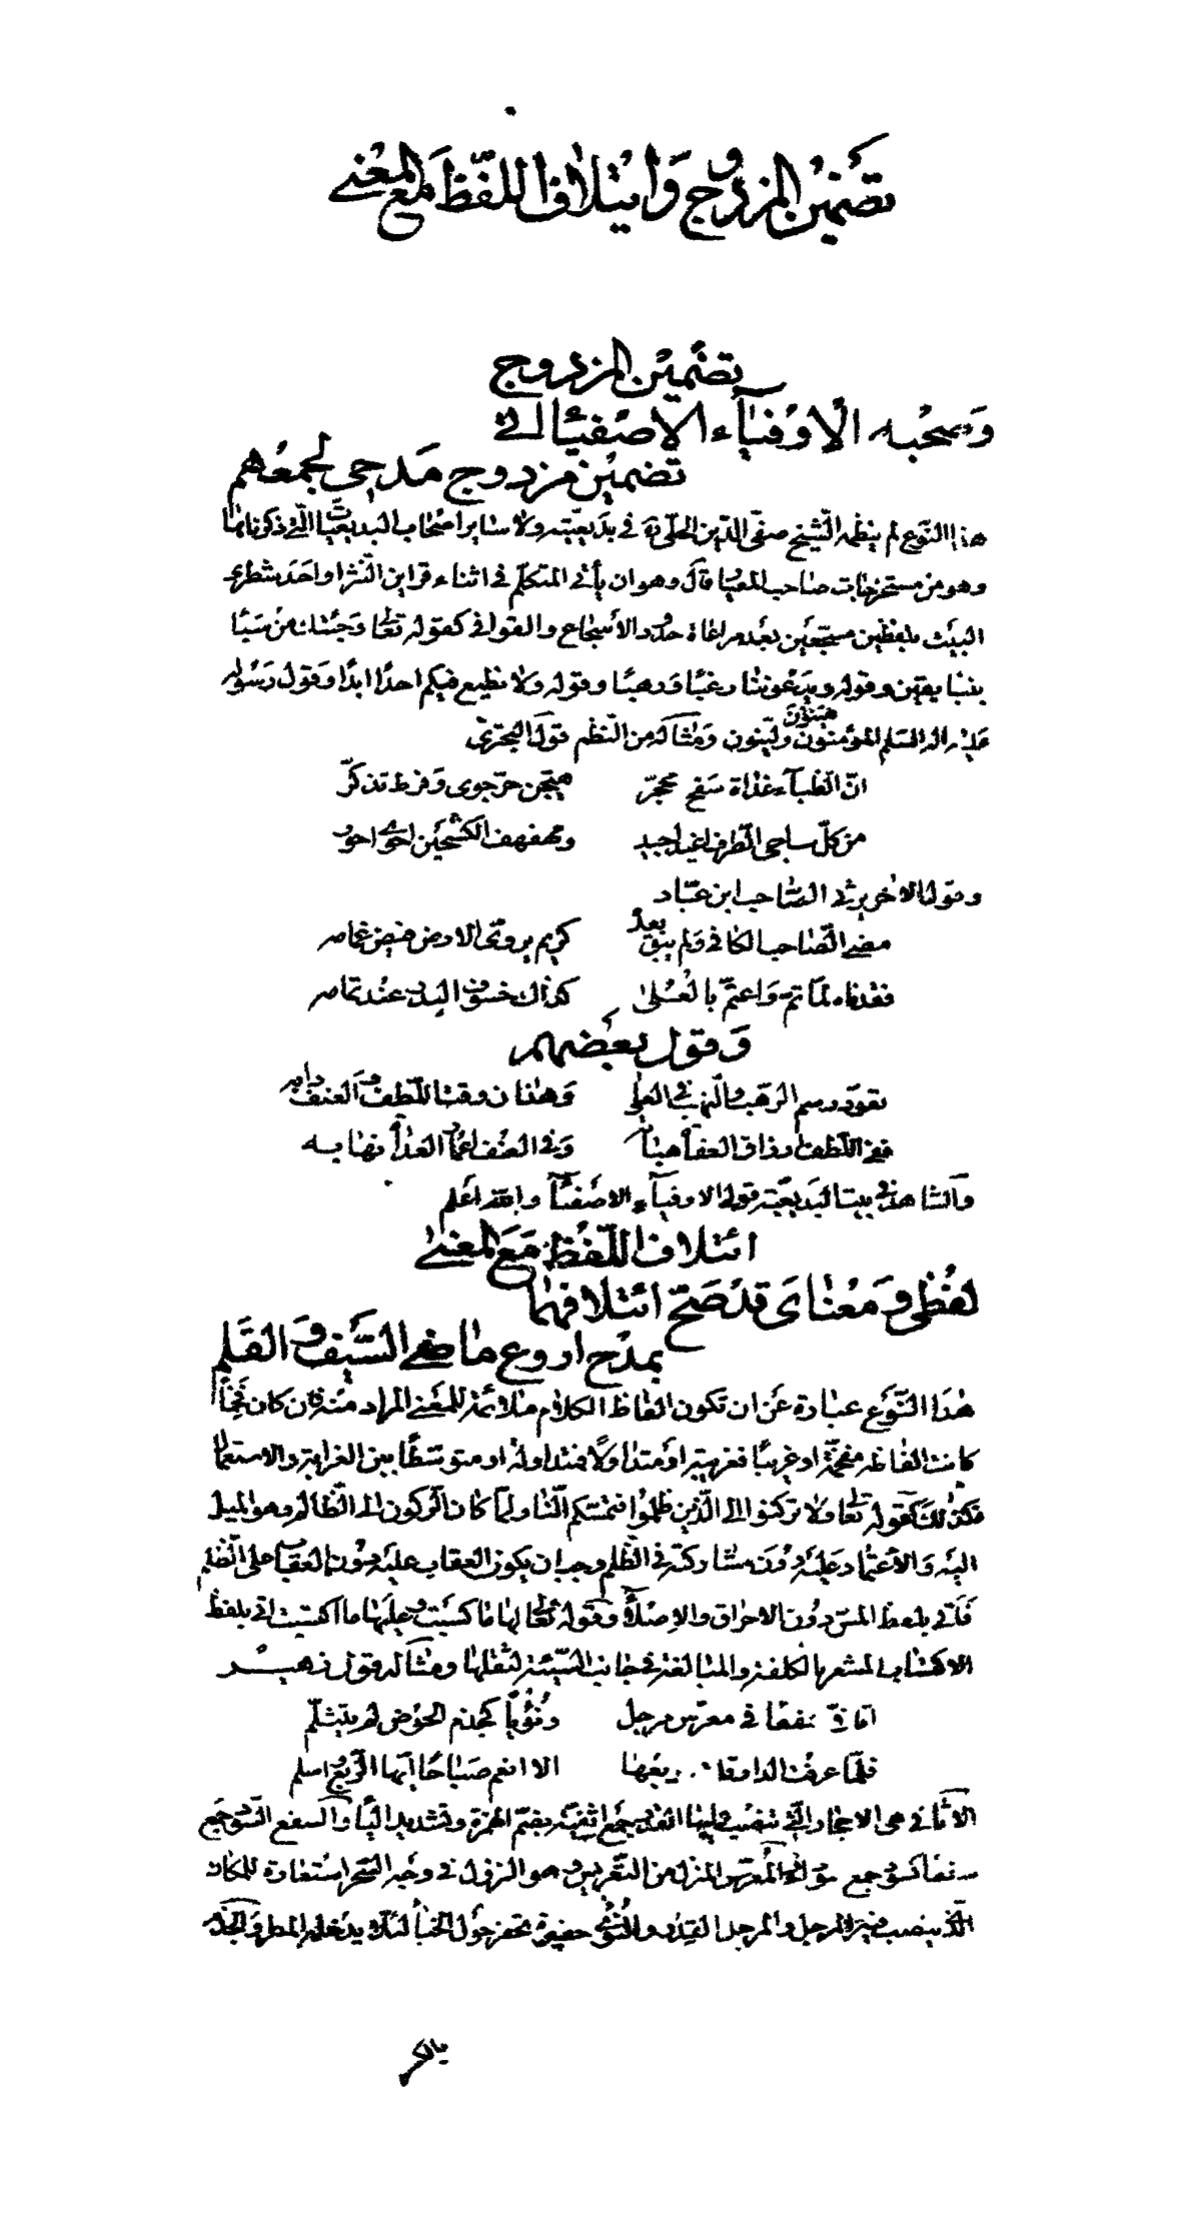 تضمين المزدوج وايتلاف اللفظ مع المعنى
تضمين المزدوج
وصحبه الاوفياء الاصفيا الى
تضمين مزدوج مدحى لجمعهم
هذا النوع لم ينظمه الشيخ صفى الدين الحلى فى بديعيته ولا ساير اصحاب البديعيات التى ذكرناها
وهو من مستخرجات صاحب المعيار قال وهو ان يأتى المتكلم فى اثناء قراين النثر او احد شطرى
البيت بلفظين مسجعين بعد مراعاة حدود الأسجاع والقوافى كقوله تعالى وجئتك من سبأ
بنبأ يقين وقوله ويدعوننا رغبًا ورهبًا وقوله ولا نطيع فيكم احدًا ابدًا وقول رسوله
عليه السلم المؤمنون هينون ولينون ومثاله من النظم قول البحترى
انّ الظباء غداة سفح محجّر هيّجن حرّ جوى وفرط تذكّر
من كلّ ساجى الطرف اغيد اجيد ومهفهف الكشحين احوى احور
وقول الاخر يرثى الصاحب ابن عباد
مضى الصاحب الكافى ولم يبق بعده كريم يروّى الارض فيض غمامه
فقدناه لمّا تمّ واعتمّ بالعلى كذاك خسوف البدر عند تمامه
وقول بعضهم
تعوّد رسم الوهب والنهب فى العلى وهذان وقت اللطف والعنف دابه
ففى اللطف ارزاق العفاة هباته وفى العنف اعمار العداة نهابه
والشاهد فى بيت البديعية قوله الاوفياء الاصفياء والله اعلم
ائتلاف اللفظ مع المعنى
لفظى ومعناى قد صحّ ائتلافهما
بمدح اروع ماضى السيف والقلم
هذا النوع عبارة عن ان تكون الفاظ الكلام ملائمة للمعنى المراد منه فان كان فخمًا
كانت الفاظه مفخمة او غريبًا فغريبة او متداولًا فمتداولة او متوسطًا بين الغرابة والاستعمال
فكذلك كقوله تعالى ولا تركنوا الى الذين ظلموا فتمسكم النار لما كان الركون الى الظالم وهو الميل
اليه والاعتماد عليه دون مشاركته فى الظلم وجب ان يكون العقاب عليه دون العقاب على الظلم
فأتى بلفظ المس دون الاحراق والاصلاء وقوله تعالى لها ما كسبت وعليها ما اكتسبت اتى بلفظ
الاكتساب المشعر بالكلفة والمبالغة فى جانب السيئة لثقلها ومثاله قول زهير
اثافىّ سفعًا فى معرّس مرجل ونؤيًا كجذم الحوض لم يتثلّم
فلمّا عرفت الدار قلت لربعها الا انعم صباحًا ايها الربع واسلم
الاثافى هى الاحجار التى تنصب عليها القدر جمع اثفية بضم الهمزة وتشديد الياء والسفع السود جمع
سفعا كسود جمع سوداء والمعرس المنزل من التعريس وهو النزول فى وجه السحر استعارة للمكان
الذى ينصب فيه المرجل والمرجل القدر والنؤى حفيرة تحفر حول الخباء لئلا يدخله المطر والجذم
بالكسر